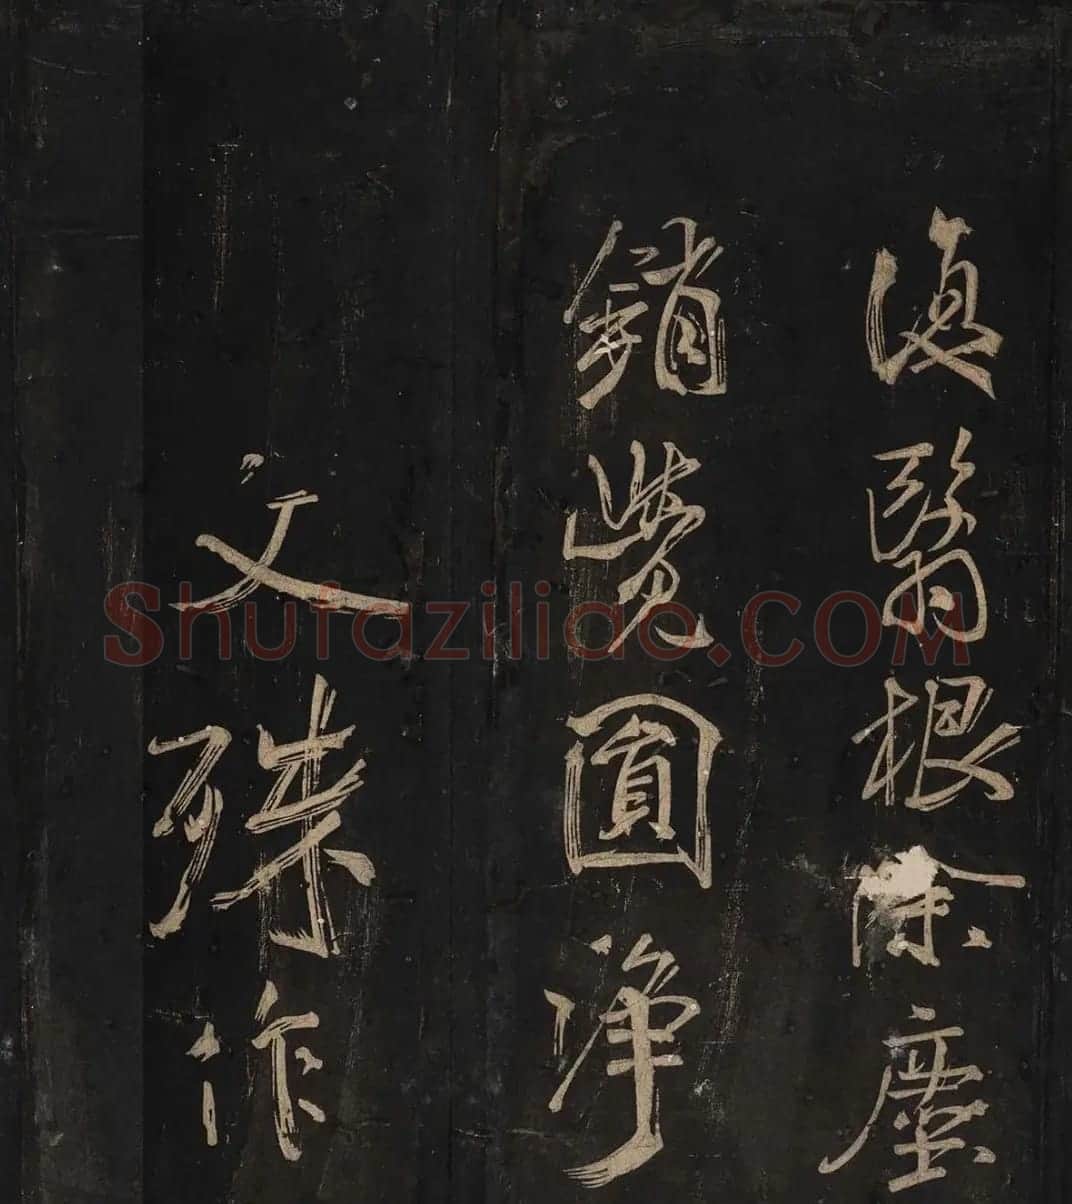 復翳根除塵
銷覺圓淨
文殊作
Shufaziliao.COM